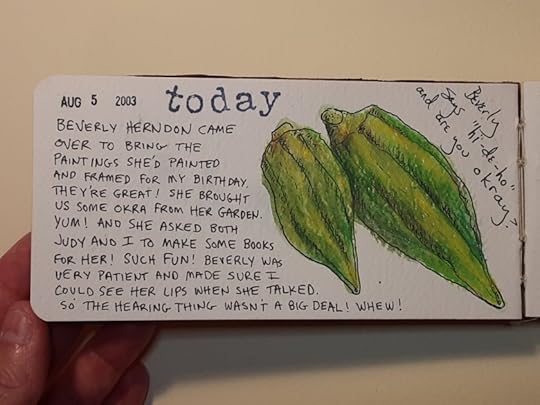 AUG 5 2003
today
BEVERLY HERNDON CAME
OVER TO BRING THE
PAINTINGS SHE'D PAINTED
AND FRAMED FOR MY BIRTHDAY.
THEY'RE GREAT! SHE BROUGHT
US SOME OKRA FROM HER GARDEN.
YUM! AND SHE ASKED BOTH
JUDY AND I TO MAKE SOME BOOKS
FOR HER! SUCH FUN! BEVERLY WAS
VERY PATIENT AND MADE SURE I
COULD SEE HER LIPS WHEN SHE TALKED.
SO THE HEARING THING WASN'T A BIG DEAL! WHEW!
Beverly
says "hi-de-ho"
and are you okray?